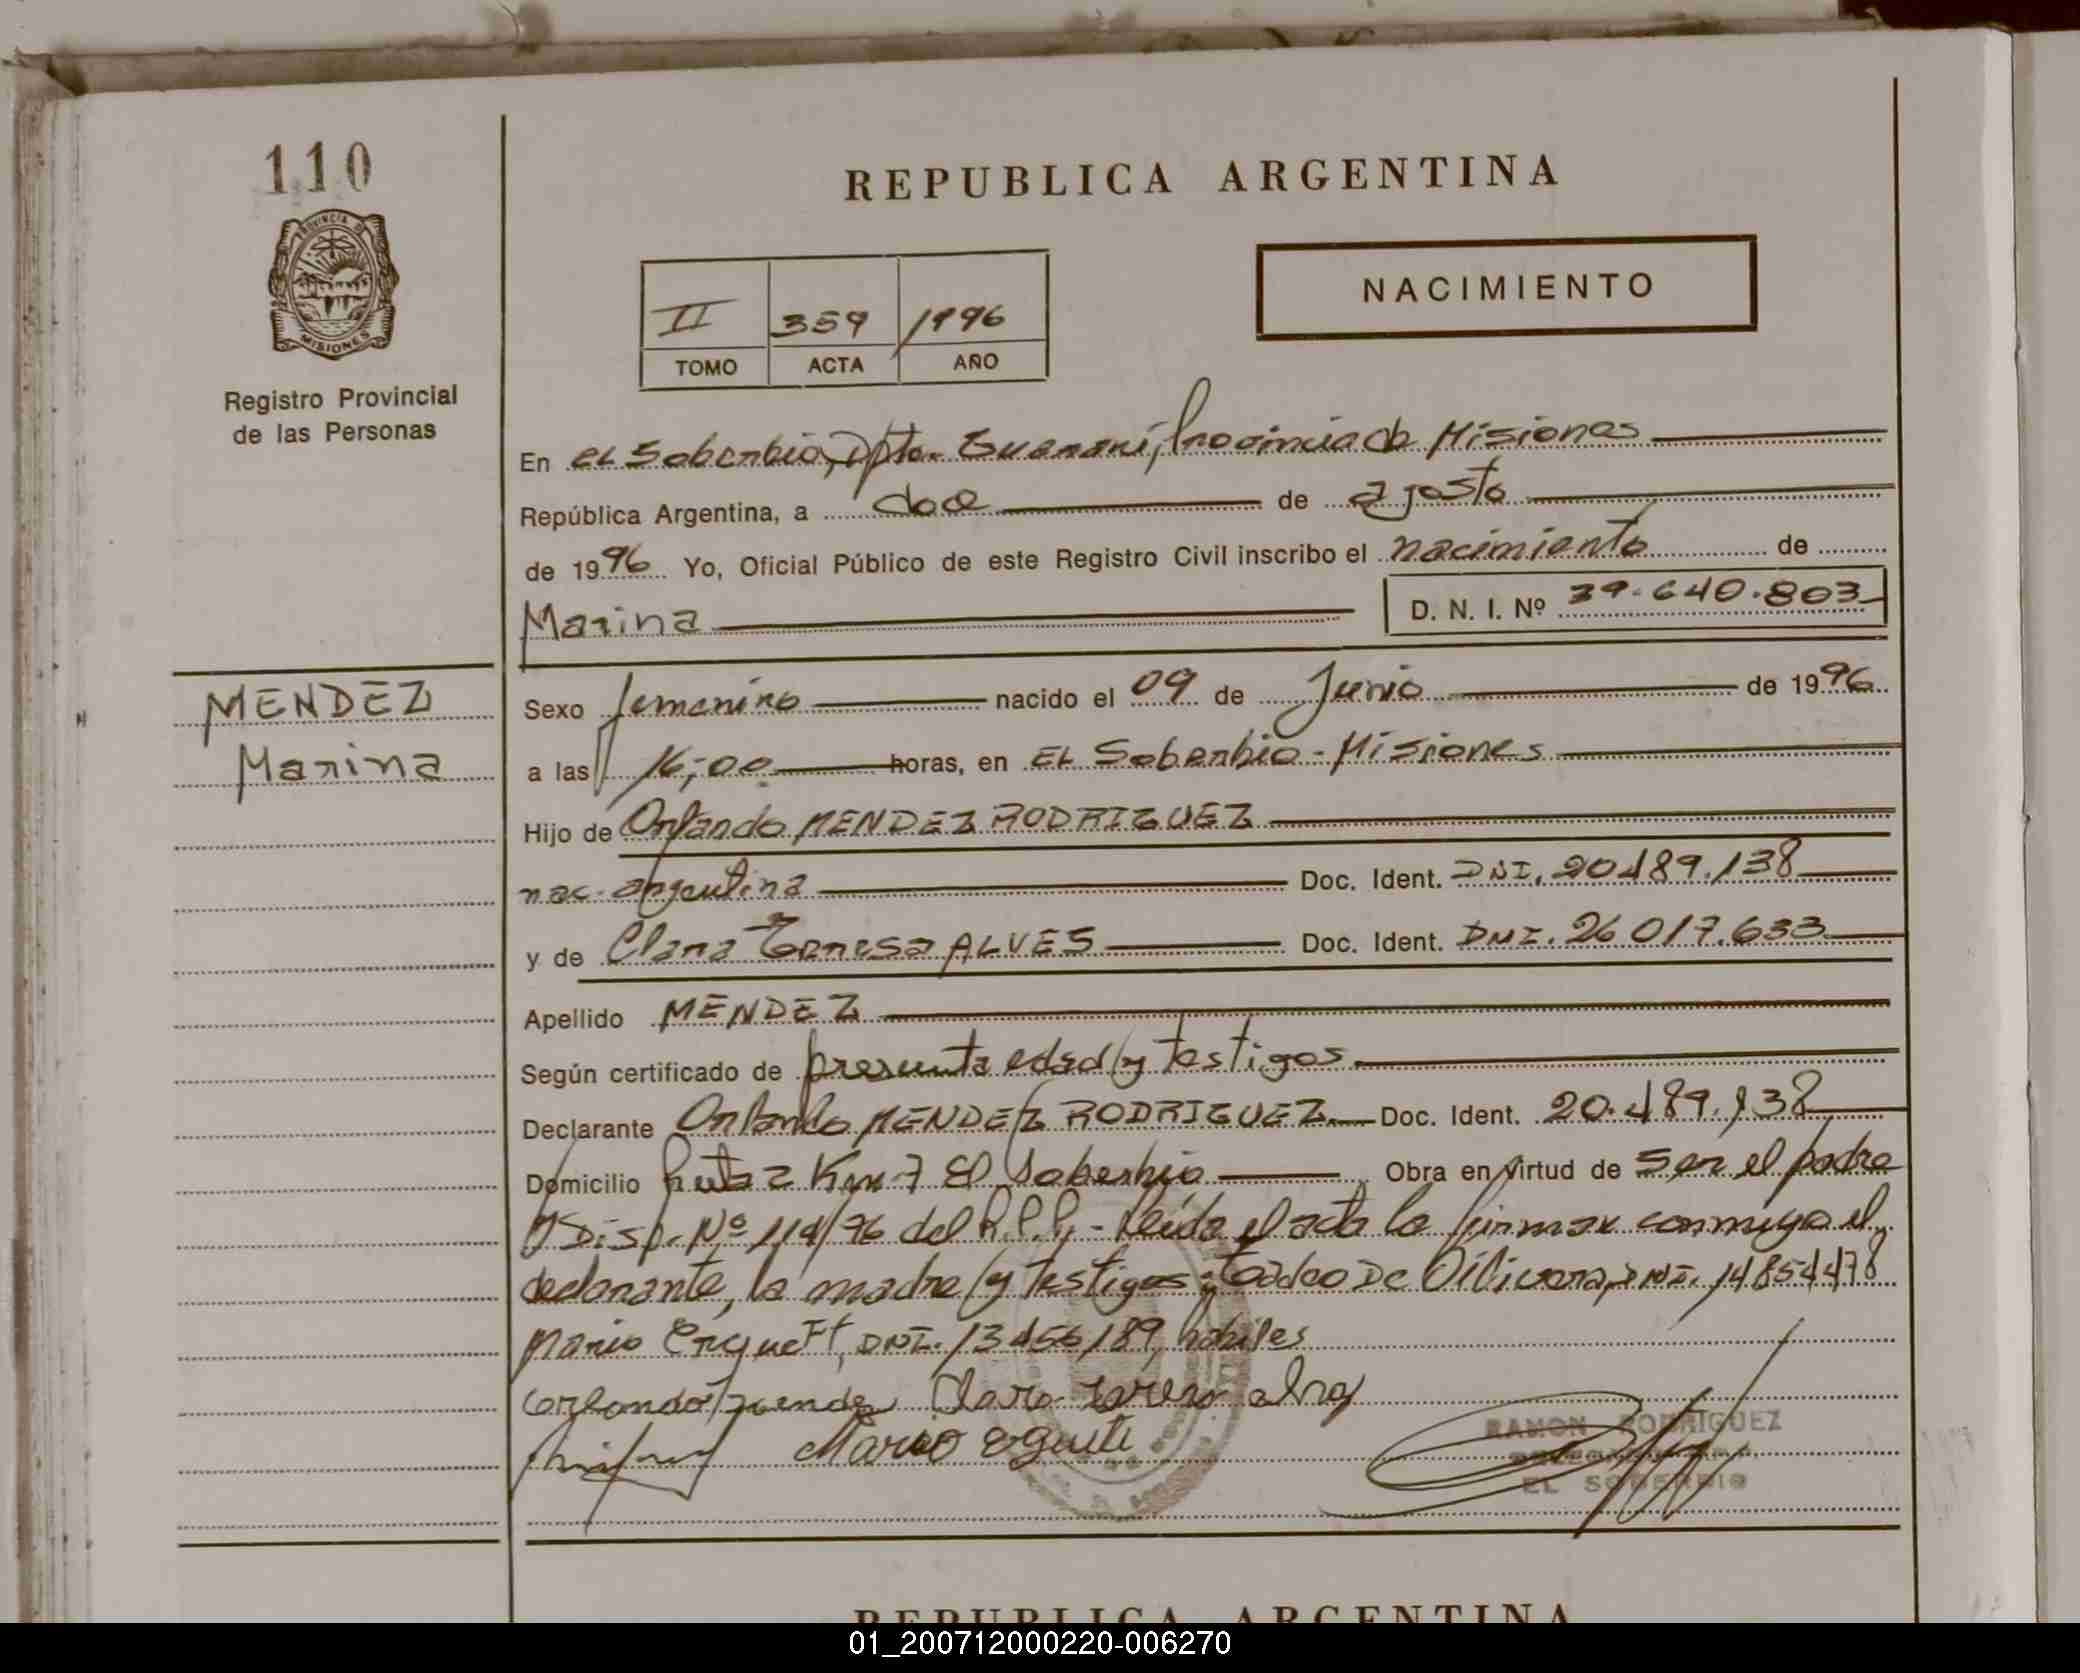 110
PROVINCIA DE
MISIONES
Registro Provincial
de las Personas
REPUBLICA ARGENTINA
II 359 1996
TOMO ACTA AÑO
NACIMIENTO
En EL Soberbio, Dpto. Guaraní, Provincia de Misiones
República Argentina, a doce de agosto
de 1996 Yo, Oficial Público de este Registro Civil inscribo el nacimiento de
Marina D. N. I. Nº 39.640.803
MENDEZ
Marina
Sexo femenino nacido el 09 de Junio de 1996
a las 16,00 horas, en EL Soberbio - Misiones
Hijo de Orlando MENDEZ RODRIGUEZ
nac. argentina Doc. Ident. DNI. 20489.138
y de Clara Teresa ALVES Doc. Ident. DNI. 26017.633
Apellido MENDEZ
Según certificado de presunta edad y testigos
Declarante Orlando MENDEZ RODRIGUEZ Doc. Ident. 20.489.138
Domicilio Ruta 2 Km 7 El Soberbio Obra en virtud de ser el padre
y Disp. Nº 114/96 del R.P.P. - Leída el acta la firman conmigo el
declarante, la madre y testigos: Tadeo De Olivera, DNI. 14854478
Mario DNI. 13456189, habiles
orlando mende Clara
Mario
RAMON RODRIGUEZ
EL SOBERBIO
REPUBLICA ARGENTINA
01_200712000220-006270